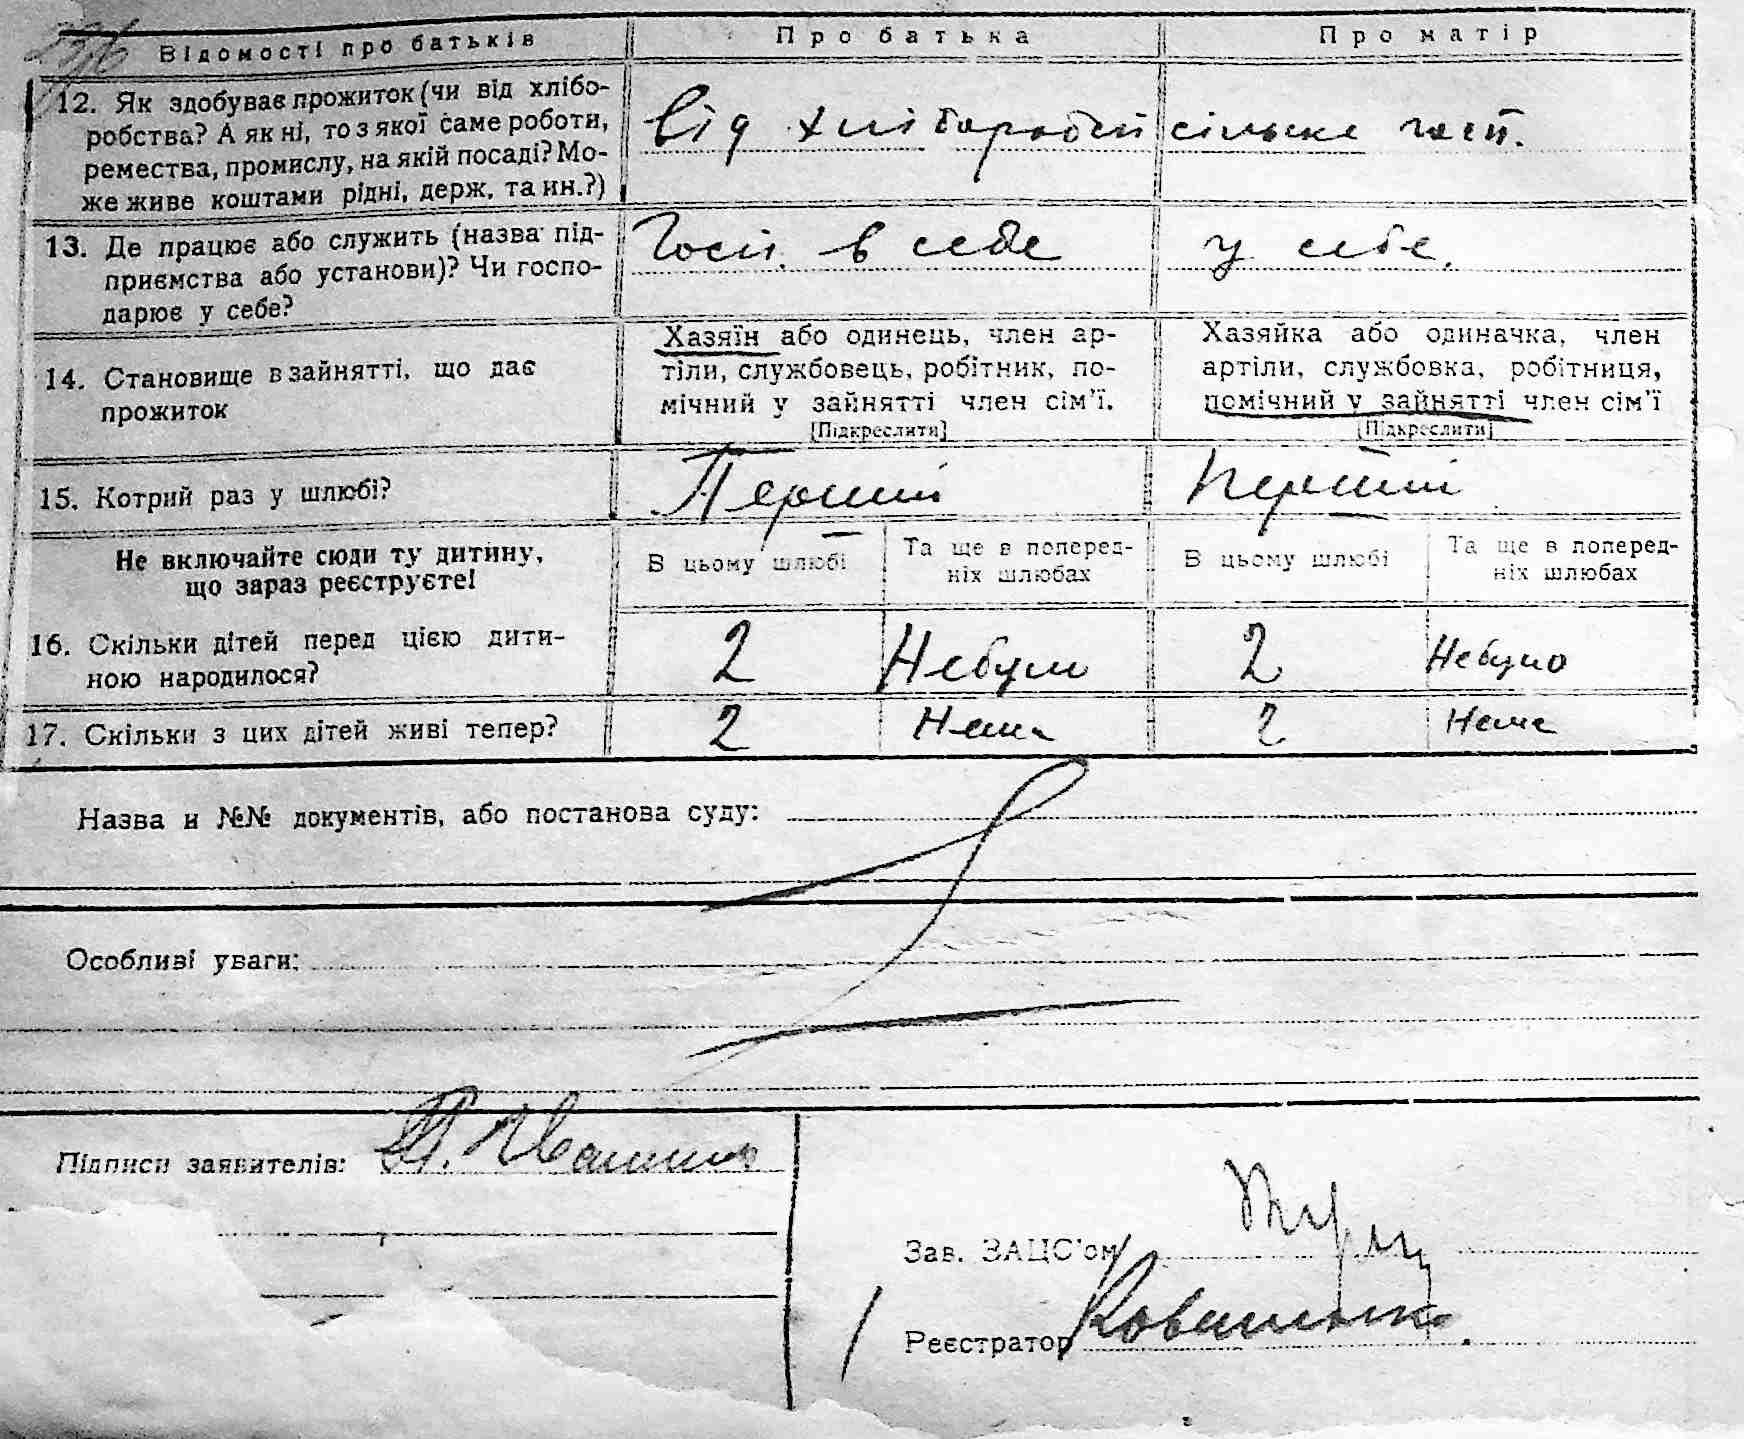 Відомості про батьків Про батька Про матір
12. Як здобуває прожиток (чи від хлібо-
робства? А як ні, то з якої саме роботи,
ремества, промислу, на якій посаді? Мо-
же живе коштами рідні, держ. та ин.?)
Від сільске госп.
13. Де працює або служить (назва під-
приємства або установи)? Чи госпо-
дарює у себе?
Госп. в себе у себе.
14. Становище в зайнятті, що дає
прожиток
Хазяїн або одинець, член ар-
тіли, службовець, робітник, по-
мічний у зайнятті член сім'ї.
[Підкреслити]
Хазяйка або одиначка, член
артіли, службовка, робітниця,
помічний у зайнятті член сім'ї
[Підкреслити]
15. Котрий раз у шлюбі? Перший Перший
Не включайте сюди ту дитину,
що зараз реєструєте!
В цьому шлюбі
Та ще в поперед-
ніх шлюбах
В цьому шлюбі
Та ще в поперед-
ніх шлюбах
16. Скільки дітей перед цією дити-
ною народилося?
2 Небули 2 Небуло
17. Скільки з цих дітей живі тепер? 2 Нема 2 Нема
Назва и №№ документів, або постанова суду:
Особливі уваги:
Підписи заявителів:
Зав. ЗАЦС'ом
Реєстратор